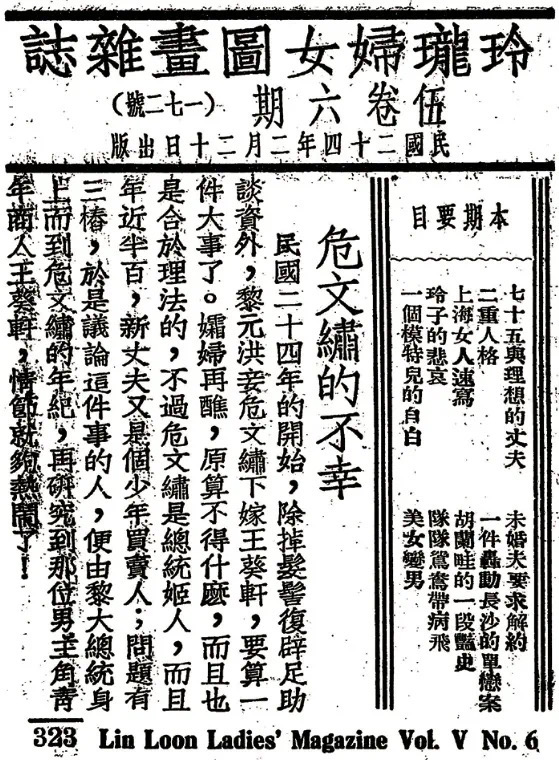 玲瓏婦女圖畫雜誌
伍卷六期(一七二號)
民國二十四年二月二十日出版
本期要目
七十五與理想的丈夫
二重人格
上海女人速寫
玲子的悲哀
一個模特兒的自白
未婚夫要求解約
一件轟動長沙的單戀案
胡蘭畦的一段豔史
隊隊鴛鴦帶病飛
美女變男
危文繡的不幸
民國二十四年的開始,除掉髮髻復辟足助
談資外,黎元洪妾危文繡下嫁王葵軒,要算一
件大事了。孀婦再醮,原算不得什麼,而且也
是合於理法的,不過危文繡是總統姬人,而且
年近半百,新丈夫又是個少年買賣人;問題有
三樁,於是議論這件事的人,便由黎大總統身
上而到危文繡的年紀,再研究到那位男主角青
年商人王葵軒,情節就夠熱鬧了!
323 Lin Loon Ladies' Magazine Vol. V No. 6